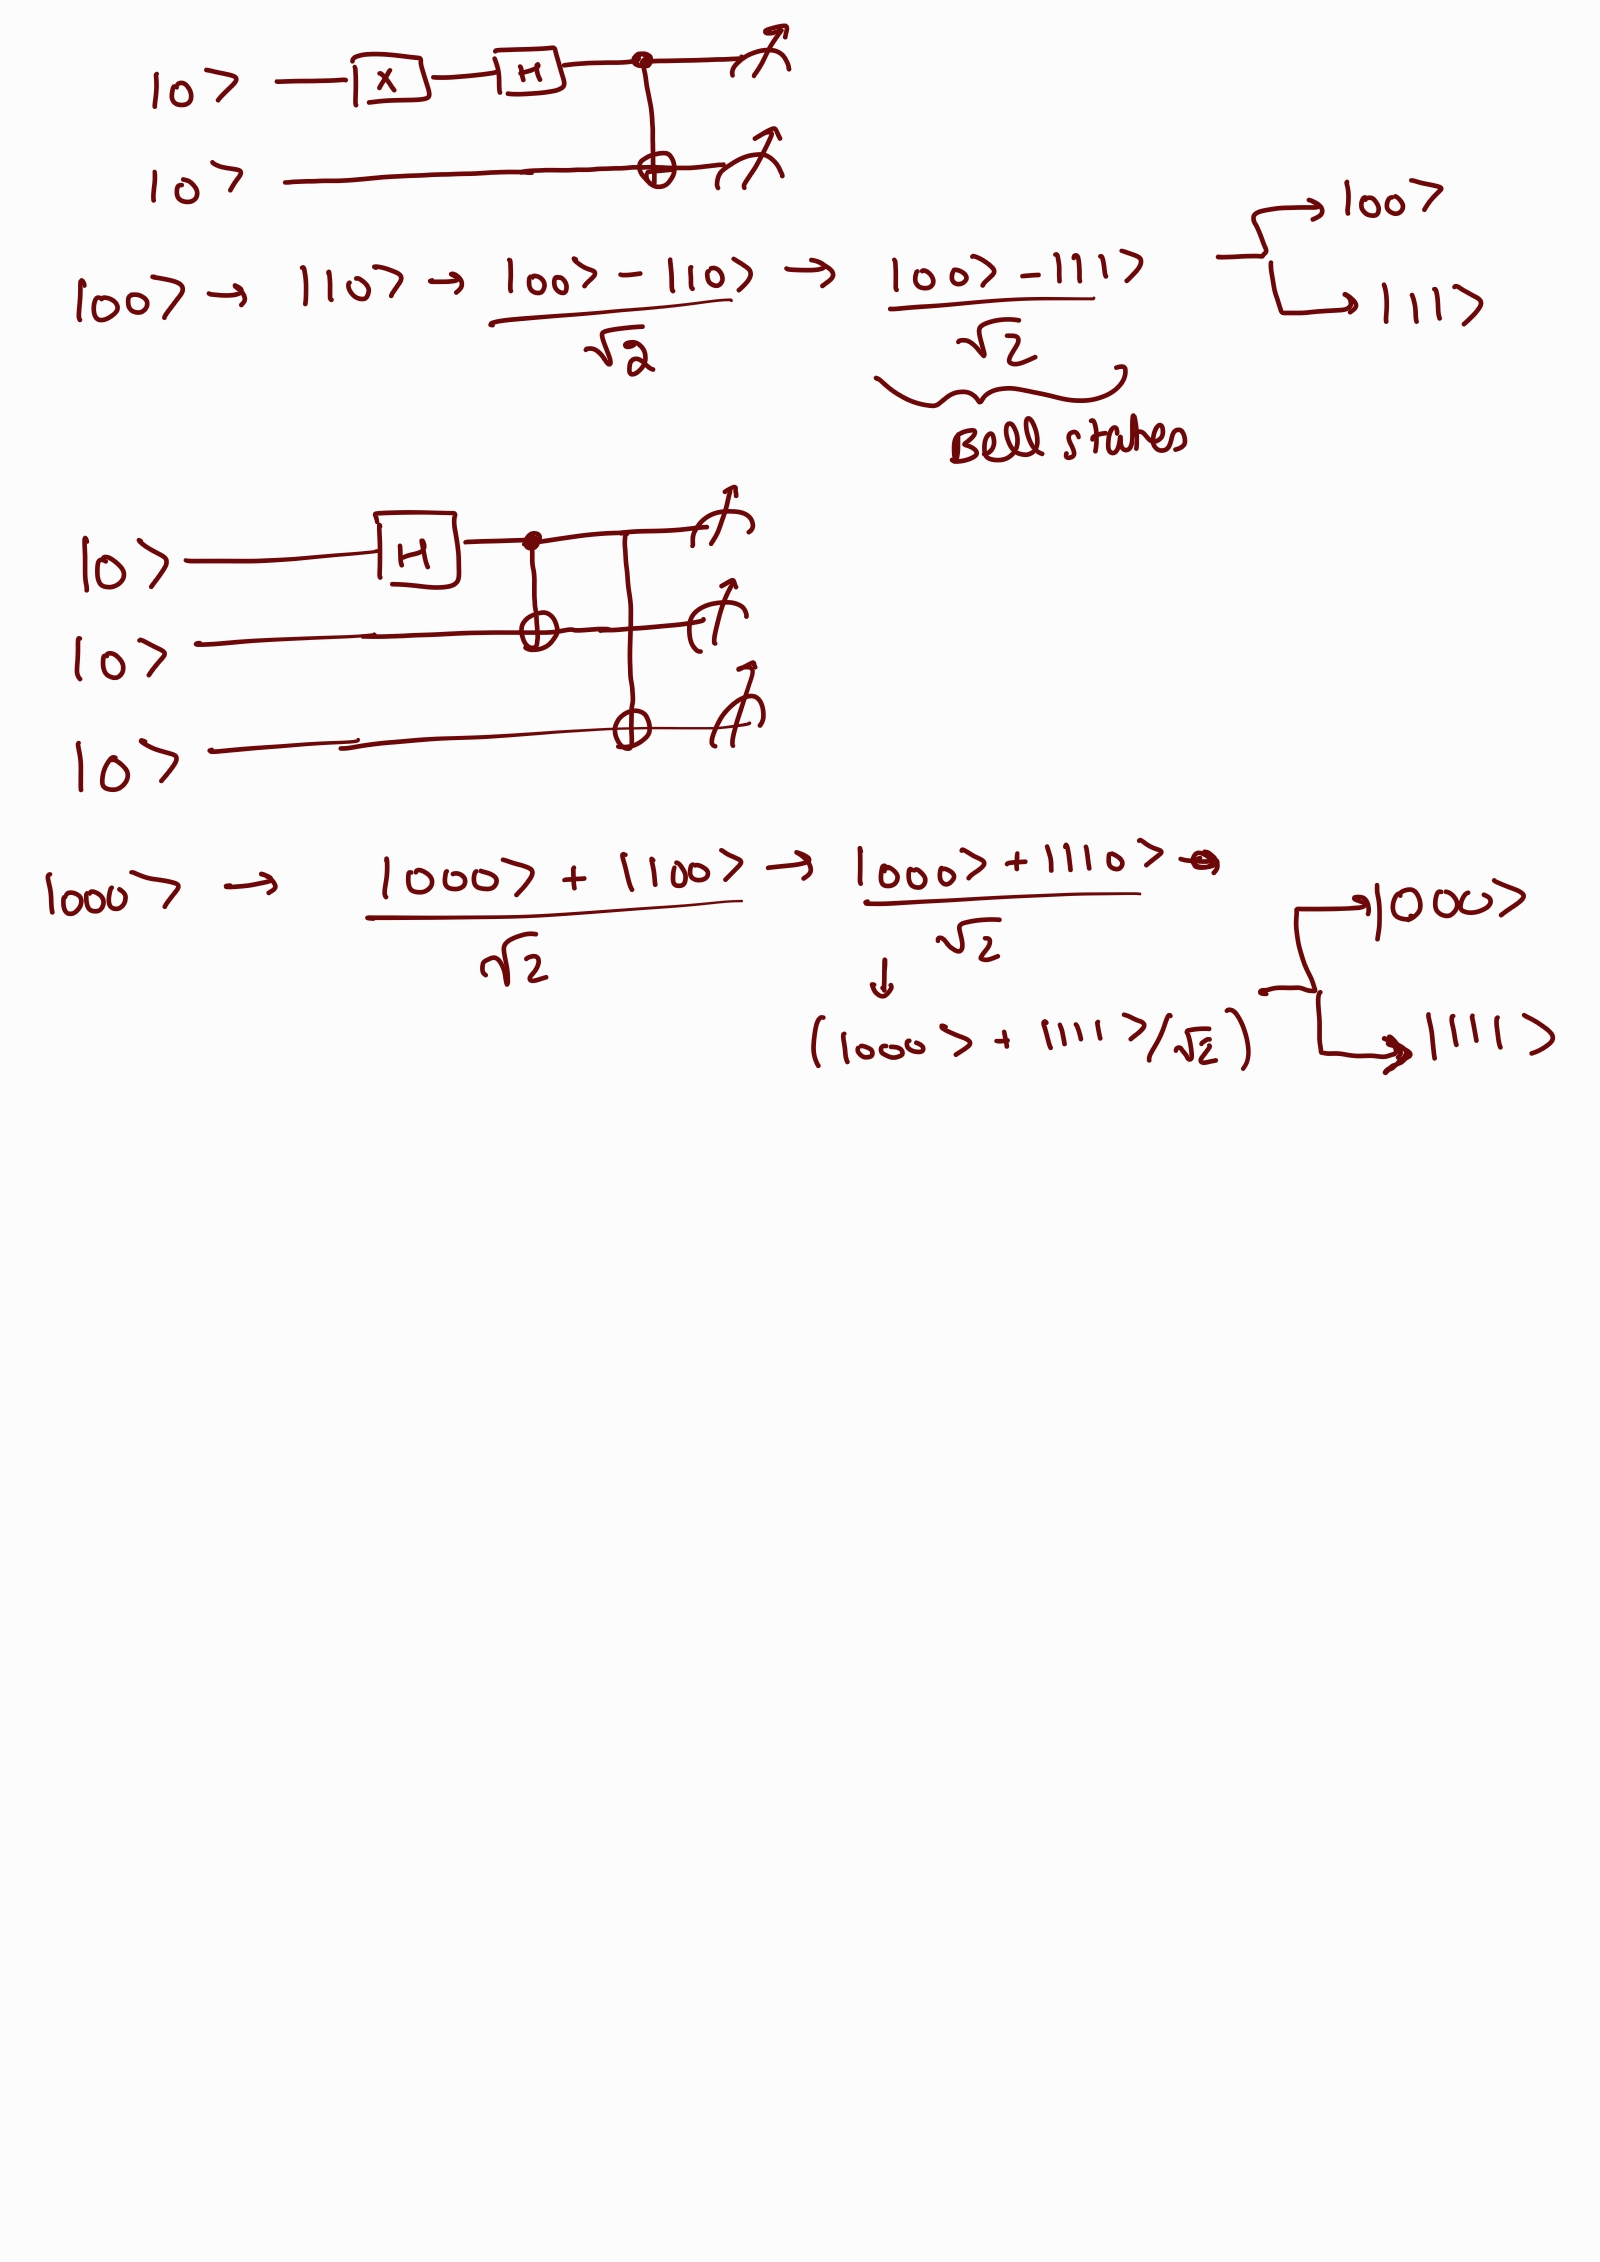 |0> X H
|0>
|00> → |10> → |00> - |10> / √2 → |00> - |11> / √2 → |00>
→ |11>
Bell states
|0> H
|0>
|0>
|000> → |000> + |100> / √2 → |000> + |110> / √2 → |000>
↓
(|000> + |111>/√2) → |111>